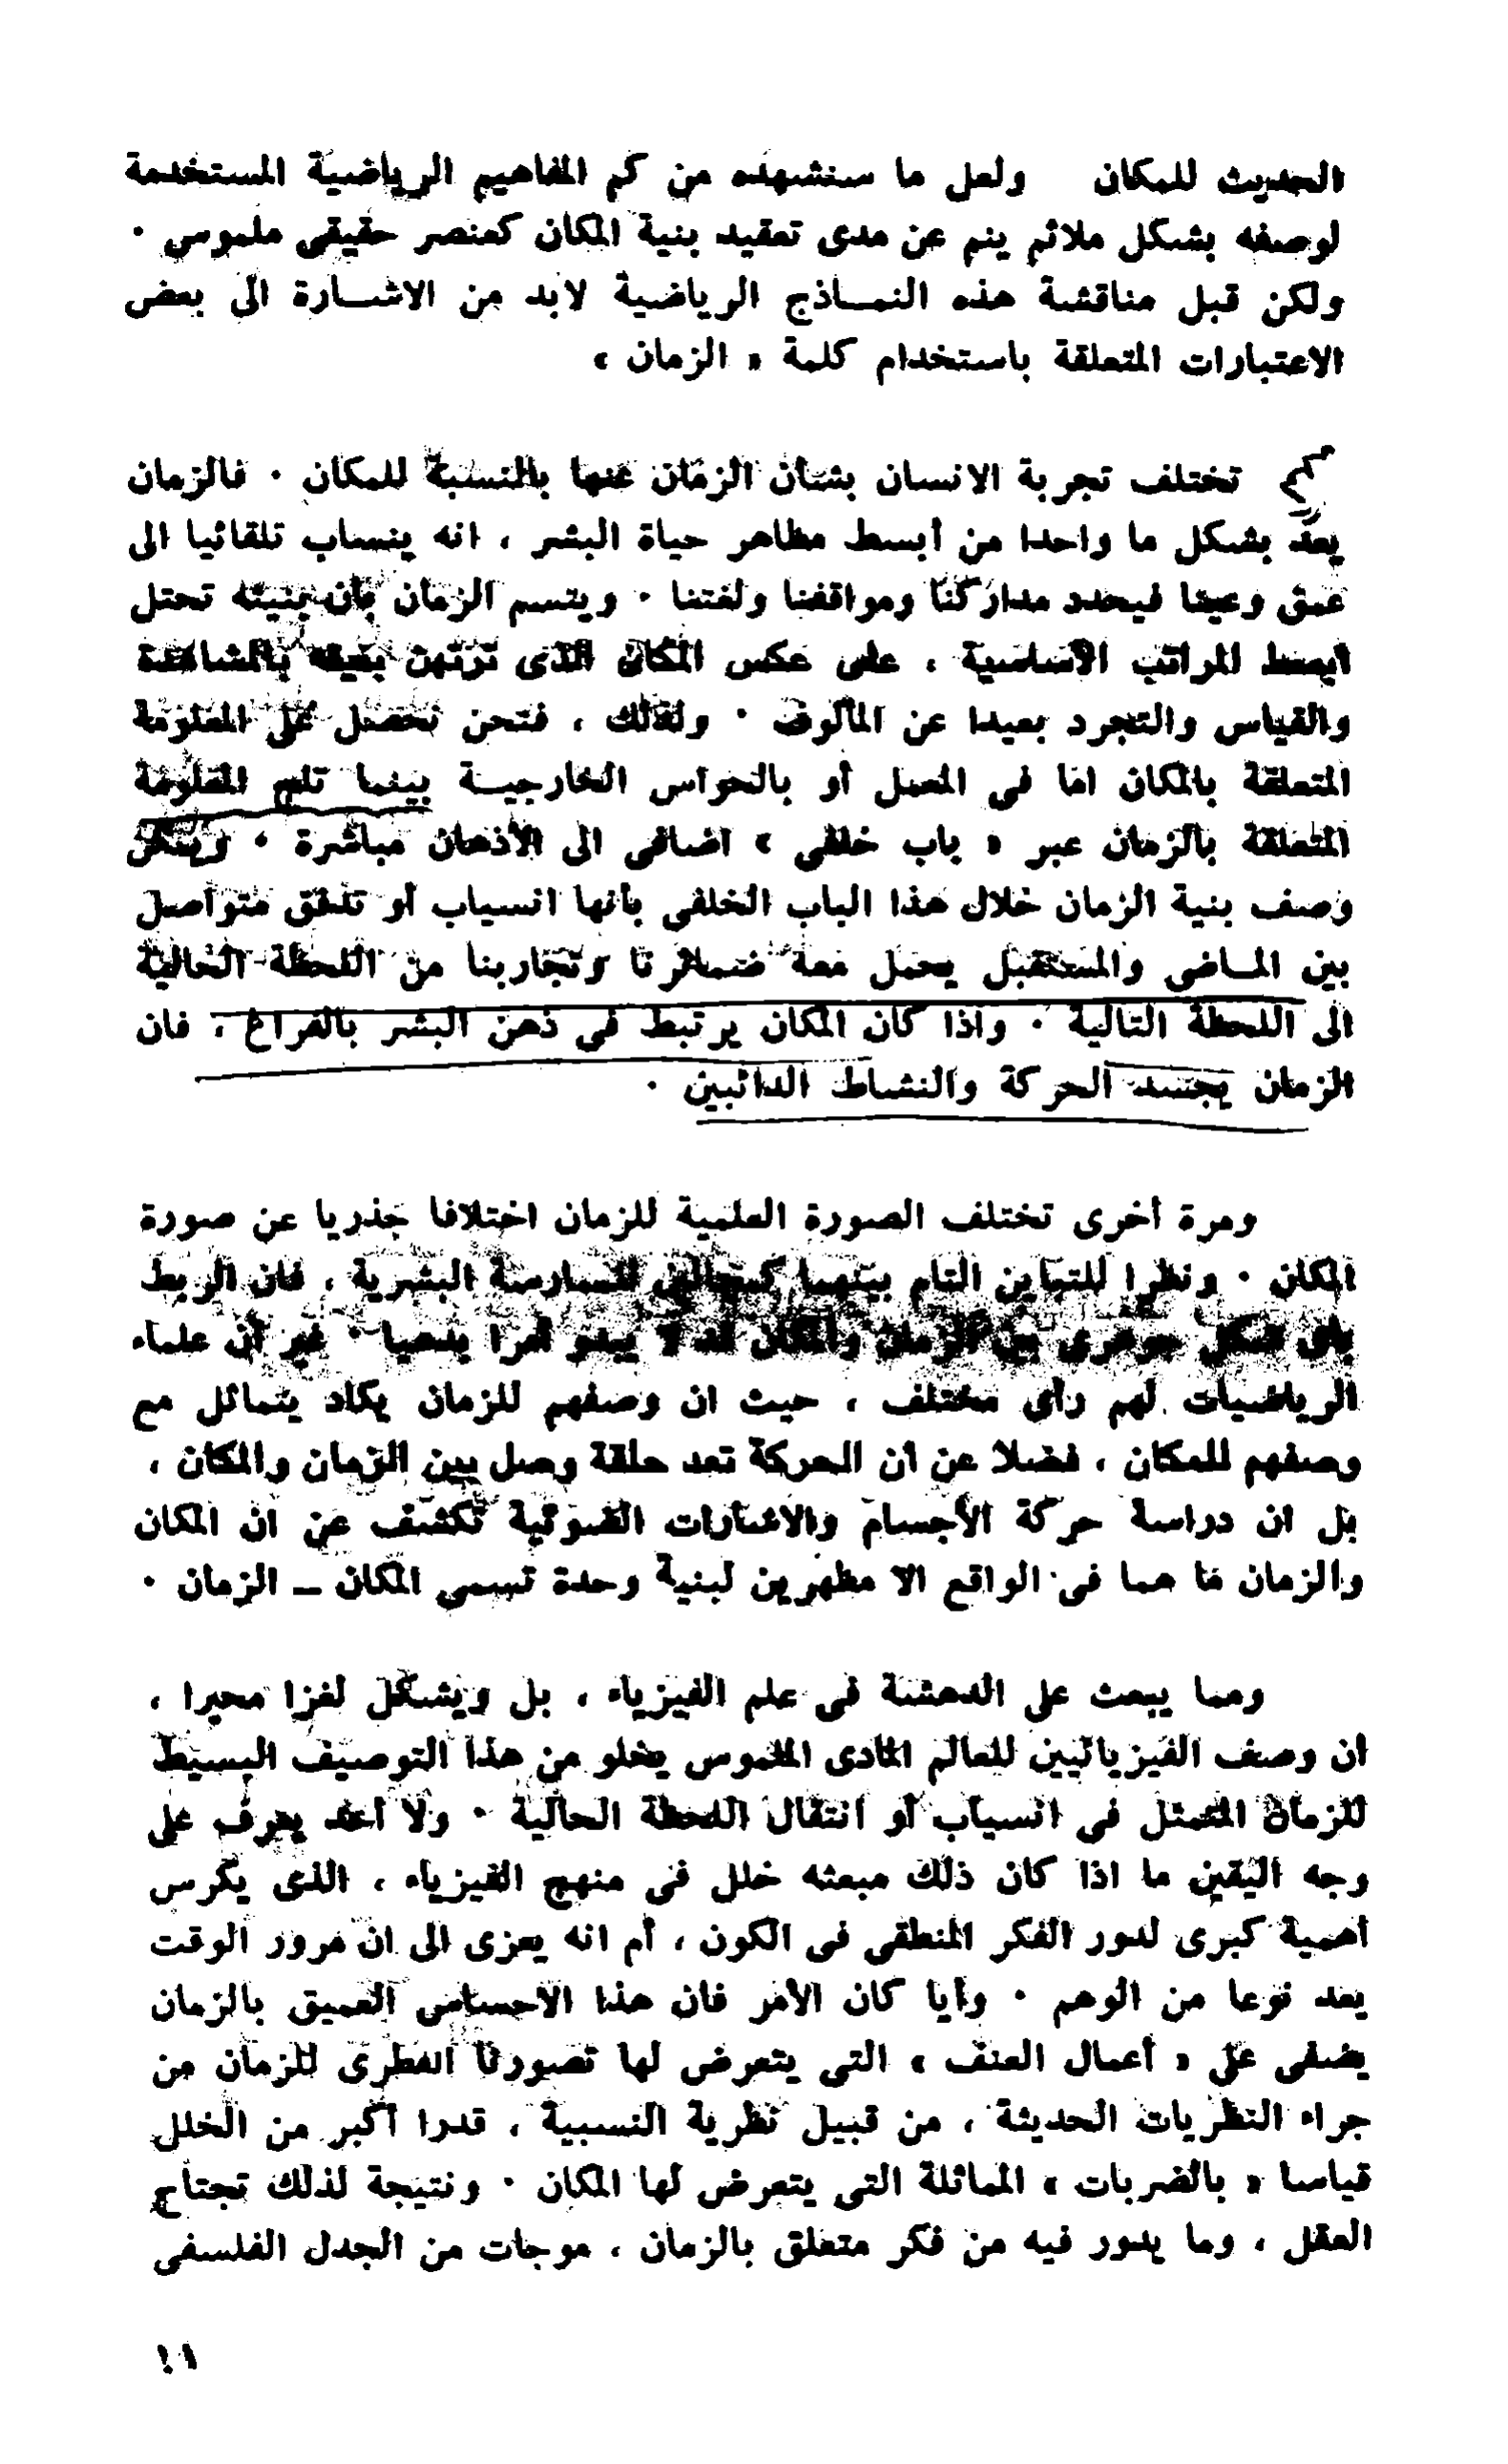 الحديث للمكان ولعل ما سنشهده من كم المفاهيم الرياضية المستخدمة
لوصفه بشكل ملائم ينم عن مدى تعقيد بنية المكان كعنصر حقيقى ملموس ٠
ولكن قبل مناقشة هذه النمــاذج الرياضية لابد من الاشــارة الى بعض
الاعتبارات المتعلقة باستخدام كلمة « الزمان »
تختلف تجربة الانسان بشأن الزمان عنها بالنسبة للمكان ٠ فالزمان
يعد بشكل ما واحدا من أبسط مظاهر حياة البشر ، انه ينساب تلقائيا الى
عمق وعينا فيحدد مداركنا ومواقفنا ولغتنا ٠ ويتسم الزمان بأن بنيته تحتل
ابسط المراتب الأساسية ، على عكس المكان الذى ترتهن بنيته بالمشاهدة
والقياس والتجرد بعيدا عن المألوف ٠ ولذلك ، فنحن نحصل على المعلومة
المتعلقة بالمكان اما فى المعمل أو بالحواس الخارجيــة بينما تلج المعلومة
المتعلقة بالزمان عبر « باب خلفى » اضافى الى الأذهان مباشرة ٠ ويمكن
وصف بنية الزمان خلال هذا الباب الخلفى بأنها انسياب أو تدفق متواصل
بين المـاضى والمستقبل يحمل معه ضمائرنا وتجاربنا من اللحظة الحالية
الى اللحظة التالية ٠ واذا كان المكان يرتبط فى ذهن البشر بالفراغ ، فان
الزمان يجسد الحركة والنشاط الدائبين ٠
ومرة أخرى تختلف الصورة العلمية للزمان اختلافا جذريا عن صورة
المكان ٠ ونظرا للتباين التام بينهما كمجالين للممارسة البشرية ، فان الربط
بأى شكل جوهرى بين الزمان والمكان قد لا يبدو أمرا بدهيا ٠ غير أن علماء
الرياضيات لهم رأى مختلف ، حيث ان وصفهم للزمان يكاد يتماثل مع
وصفهم للمكان ، فضلا عن ان الحركة تعد حلقة وصل بين الزمان والمكان ،
بل ان دراسة حركة الأجسام والاشارات الضوئية تكشف عن ان المكان
والزمان ما هما فى الواقع الا مظهرين لبنية وحدة تسمى المكان ــ الزمان ٠
ومما يبعث على الدهشة فى علم الفيزياء ، بل ويشكل لغزا محيرا ،
ان وصف الفيزيائيين للعالم المادى الملموس يخلو من هذا التوصيف البسيط
للزمان المتمثل فى انسياب أو انتقال اللحظة الحالية ٠ ولا أحد يعرف على
وجه اليقين ما اذا كان ذلك مبعثه خلل فى منهج الفيزياء ، الذى يكرس
أهمية كبرى لدور الفكر المنطقى فى الكون ، أم انه يعزى الى ان مرور الوقت
يعد نوعا من الوهم ٠ وأيا كان الأمر فان هذا الاحساس العميق بالزمان
يضفى على « أعمال العنف » التى يتعرض لها تصورنا الفطرى للزمان من
جراء النظريات الحديثة ، من قبيل نظرية النسبية ، قدرا أكبر من الخلل
قياسا « بالضربات » المماثلة التى يتعرض لها المكان ٠ ونتيجة لذلك تجتاح
العقل ، وما يدور فيه من فكر متعلق بالزمان ، موجات من الجدل الفلسفى
١١